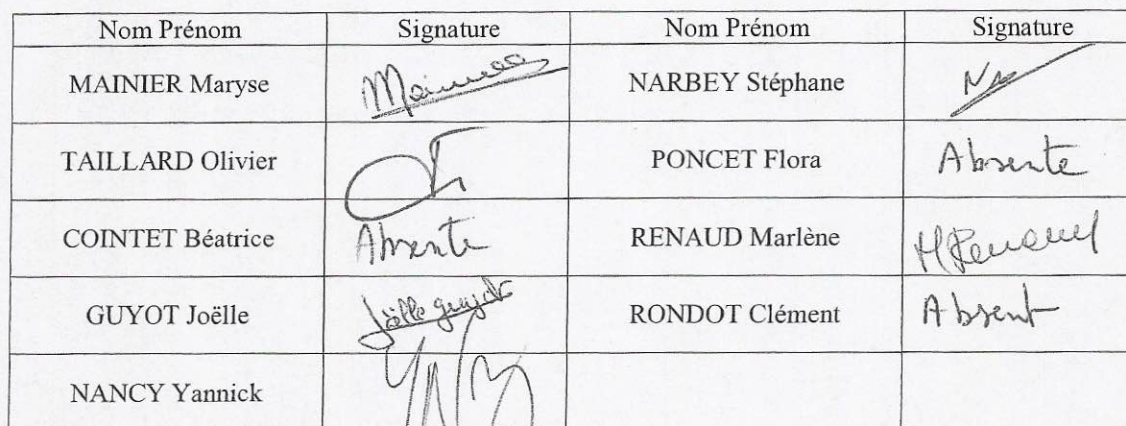 Nom Prénom Signature Nom Prénom Signature
MAINIER Maryse Mainier NARBEY Stéphane
TAILLARD Olivier PONCET Flora Absente
COINTET Béatrice Absente RENAUD Marlène M Renaud
GUYOT Joëlle Joëlle guyot RONDOT Clément Absent
NANCY Yannick